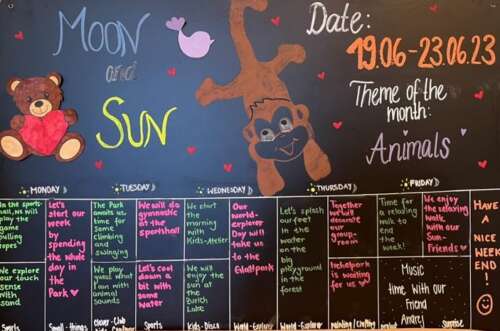 MOON
and
SUN
Date:
19.06-23.06.23
Theme of the
month:
Animals
MONDAY
TUESDAY
WEDNESDAY
THURSDAY
FRIDAY
In the sports-
hall, we will
play the
game
pulling
ropes
Let's
start our
week
by
spending
the whole
day in
the
Park
The Park
awaits us,
time for
some
climbing
and
swinging
We will do
gymnastic
at the
sportshall
We start
the
morning
with
Kids-Atelier
Our
world-
explorer
Day will
take us
to the
Glattpark
Let's splash
our feet
in the
water on
the big
playground
in the
forest
Together
we
our
group-
room
Time for
a relaxing
milk to
end the
week!
We enjoy
the relaxing
walk
with our
Sun-
Friends
HAVE
A
NICE
WEEK
END!
We explore
our touch
sense
with
sand
We play
what
Pain with
animal
sounds
Let's cool
down a
bit with
some
water
We will
enjoy the
sun at
the
Lake
park
is waiting
for us
Music
time With
our
Friend
Andrej
Sports
Small-things
Sports
Kids-Disco
World-Explorer
World-Explorer
Surprise